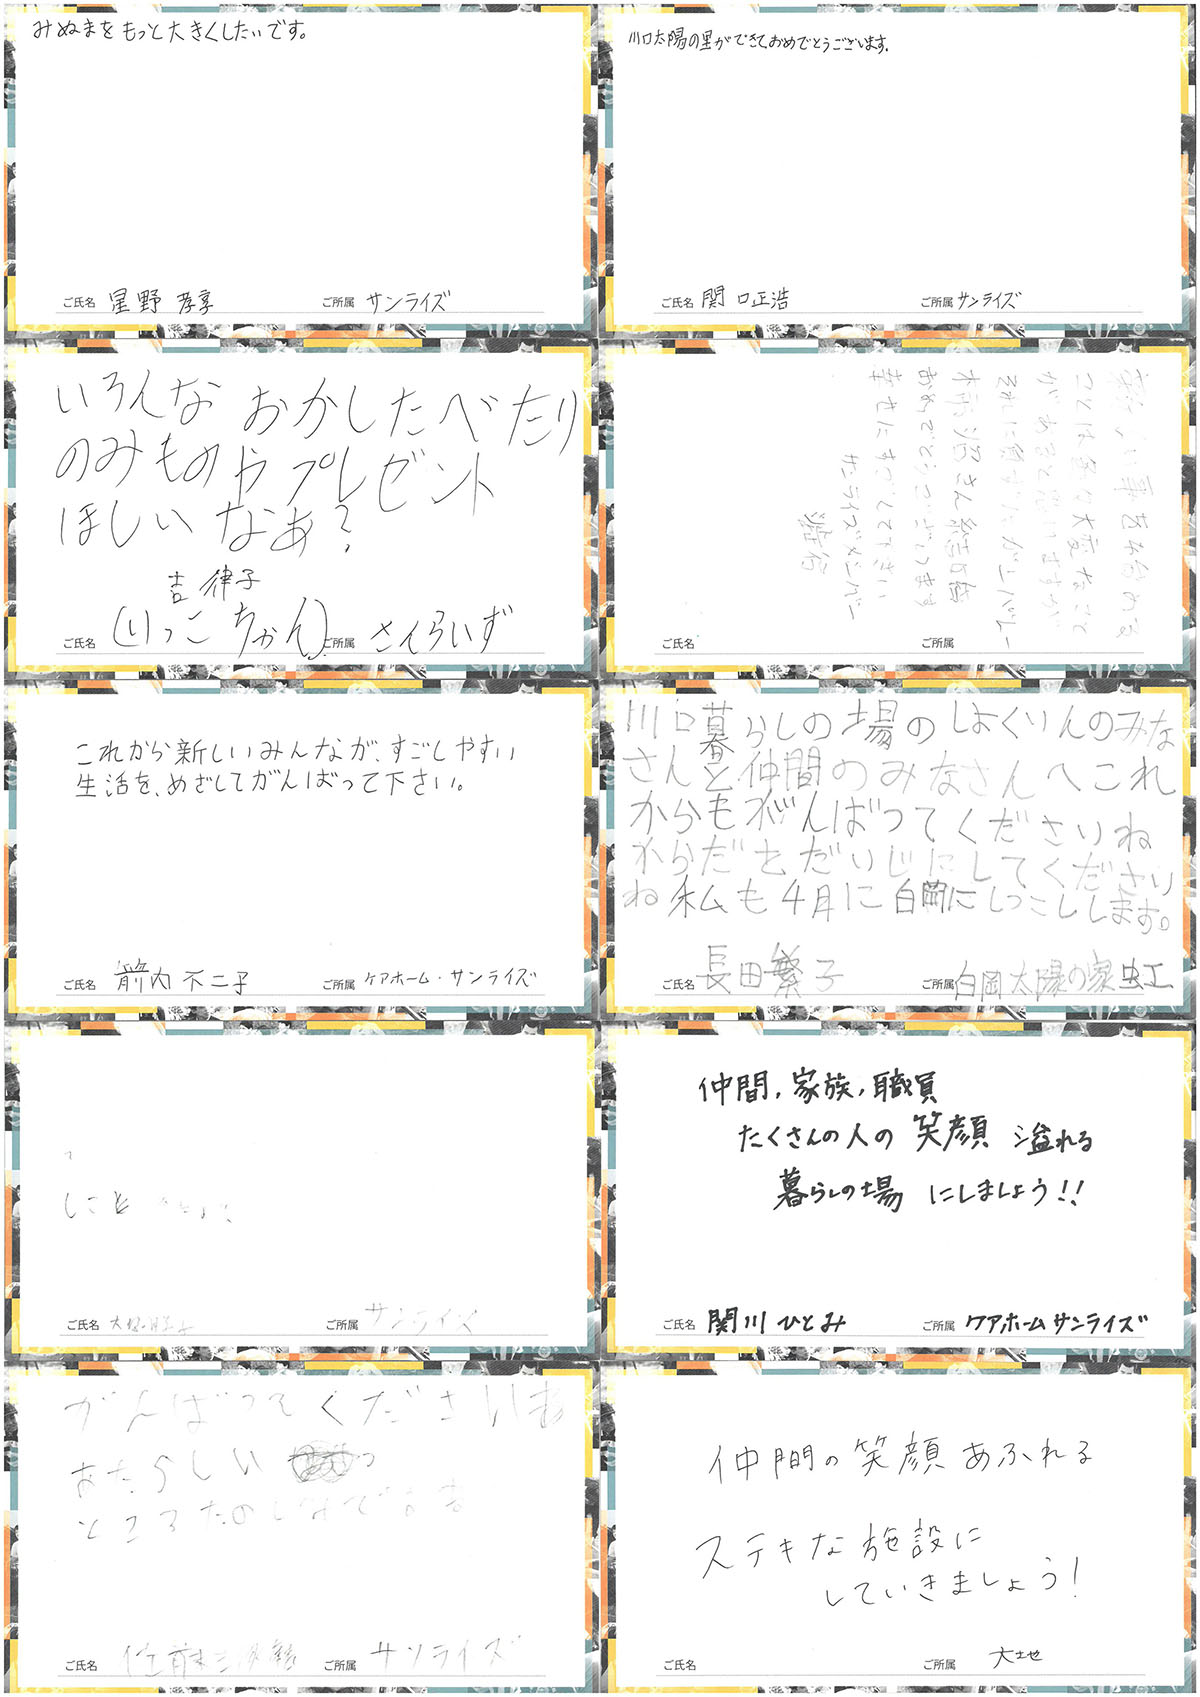 みぬまをもっと大きくしたいです。
ご氏名 星野 孝享 ご所属 サンライズ
川口太陽の里ができて、おめでとうございます。
ご氏名 関口正浩 ご所属 サンライズ
いろんな おかしたべたり
のみものやプレゼント
ほしい なあ？
吉 律子
ご氏名 (りっこちゃん) ご所属 さんらいず
新しい事を始める
ことは色々大変なこと
があると思いますが
それに負けずにがんばしー
おめでとうございます
幸せにすごして下さい
サンライズメンバー
ご氏名 ご所属
これから新しいみんなが、すごしやすい
生活を、めざしてがんばって下さい。
ご氏名 箭内不二子 ご所属 ケアホーム・サンライズ
川口暮らしの場のしょくいんのみな
さんと仲間のみなさんへこれ
からもがんばってくださいね
からだをだいじにしてください
ね私も4月に白岡にしっこしします。
ご氏名 長田繁子 ご所属 白岡太陽の家虹
しごと
ご氏名 ご所属 サンライズ
仲間、家族、職員
たくさんの人の 笑顔 溢れる
暮らしの場 にしましょう!!
ご氏名 関川ひとみ ご所属 ケアホームサンライズ
がんばってくださいね
あたらしい
ところたのしみで
ご氏名 ご所属 サンライズ
仲間の笑顔あふれる
ステキな施設に
していきましょう！
ご氏名 ご所属 大地